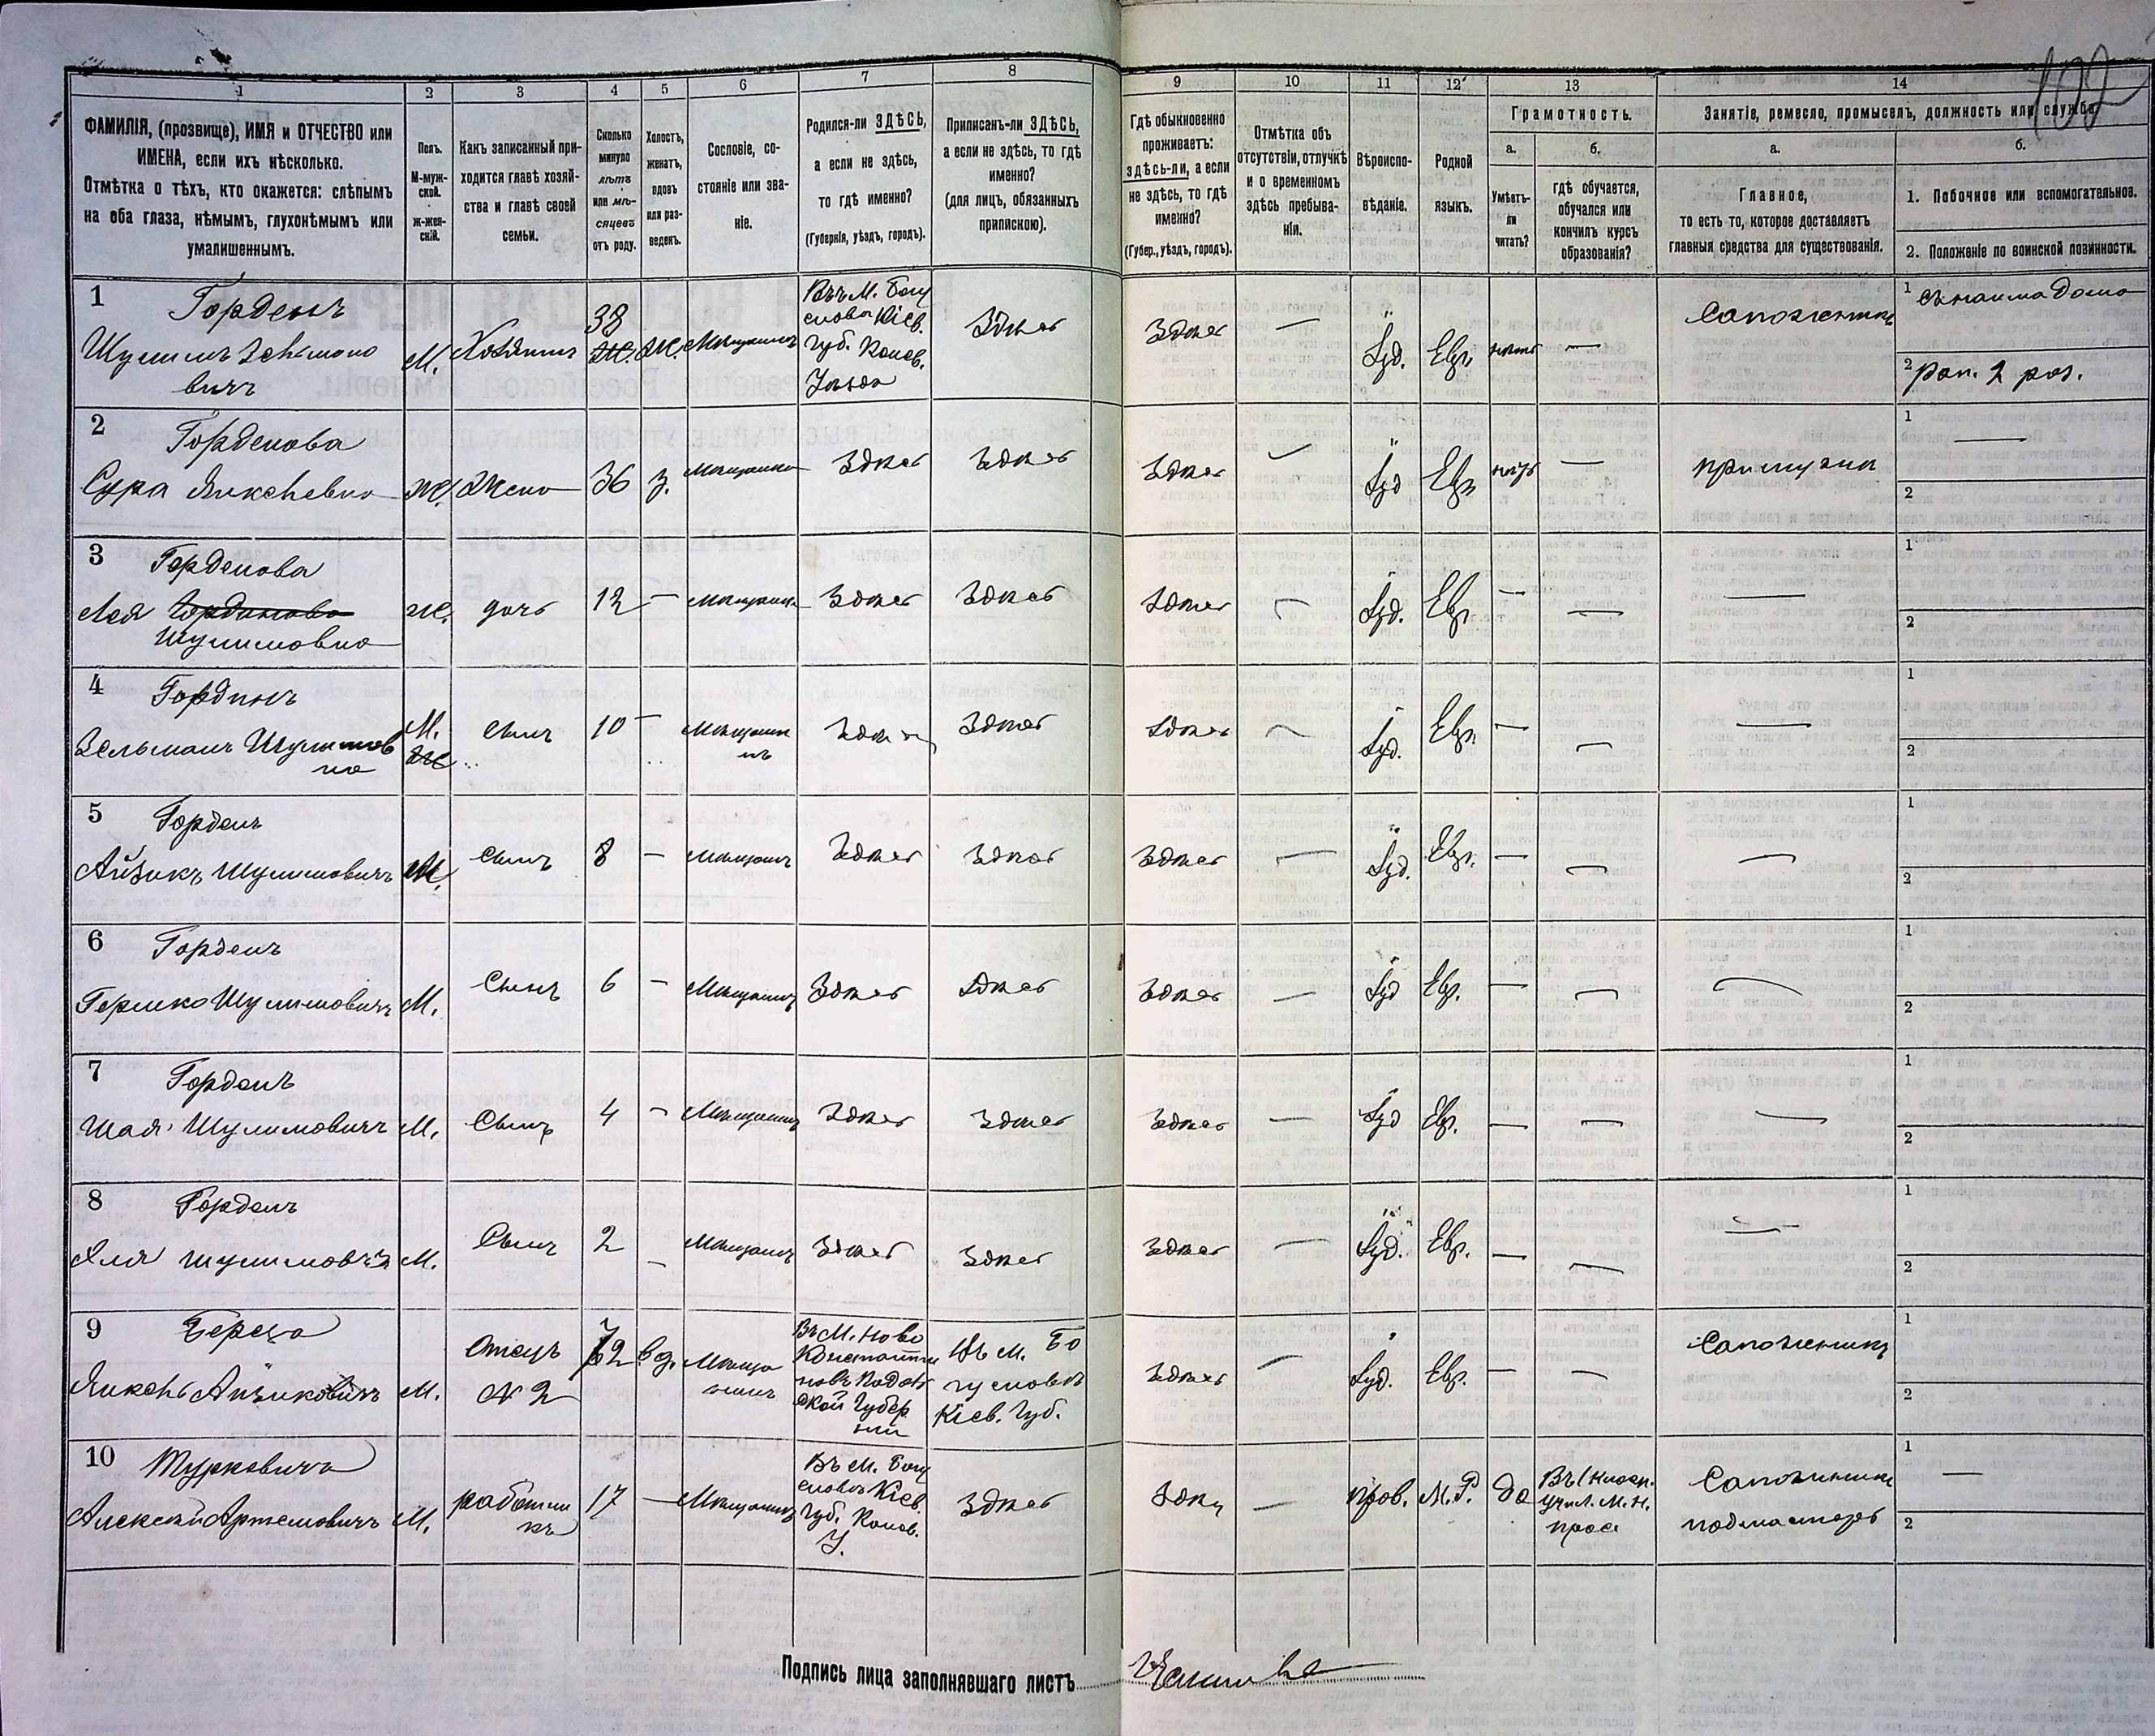 102
1 2 3 4 5 6 7 8 9 10 11 12 13 14
ФАМИЛІЯ, (прозвище), ИМЯ и ОТЧЕСТВО или
ИМЕНА, если ихъ нѣсколько.
Отмѣтка о тѣхъ, кто окажется: слѣпымъ
на оба глаза, нѣмымъ, глухонѣмымъ или
умалишеннымъ.
Полъ.
М-муж-
ской.
ж-жен-
скій.
Какъ записанный при-
ходится главѣ хозяй-
ства и главѣ своей
семьи.
Сколько
минуло
лѣтъ
или мѣ-
сяцевъ
отъ роду.
Холостъ,
женатъ,
вдовъ
или раз-
веденъ.
Сословіе, со-
стояніе или зва-
ніе.
Родился-ли ЗДѢСЬ,
а если не здѣсь,
то гдѣ именно?
(Губернія, уѣздъ, городъ).
Приписанъ-ли ЗДѢСЬ,
а если не здѣсь, то гдѣ
именно?
(для лицъ, обязанныхъ
припискою).
Гдѣ обыкновенно
проживаетъ:
здѣсь-ли, а если
не здѣсь, то гдѣ
именно?
(Губер., уѣздъ, городъ).
Отмѣтка объ
отсутствіи, отлучкѣ
и о временномъ
здѣсь пребыва-
ніи.
Вѣроиспо-
вѣданіе.
Родной
языкъ.
Грамотность.
а.
Умѣетъ-
ли
читать?
б.
гдѣ обучается,
обучался или
кончилъ курсъ
образованія?
Занятіе, ремесло, промыселъ, должность или служба.
а.
Главное,
то есть то, которое доставляетъ
главныя средства для существованія.
б.
1. Побочное или вспомогательное.
2. Положеніе по воинской повинности.
1
Горденъ
Шулимъ Зельмано
вичъ
М.
Хозяинъ
38
Ж.
Ж.
Мѣщанинъ
Въ М. Богу
слова Кіев.
Губ. Канев.
Уѣзда
Здѣсь
Здѣсь
—
Іуд.
Евр.
нѣтъ
—
Сапожникъ
1
2
Рат. 2 раз.
2
Горденова
Сура Янкелевна
Ж.
Жена
36
З.
Мѣщанка
Здѣсь
Здѣсь
Здѣсь
—
Іуд
Евр
нѣтъ
—
при мужѣ
1 —
2
3
Горденова
Лея Горденова
Шулимовна
Ж.
дочь
12
—
Мѣщанка
Здѣсь
Здѣсь
Здѣсь
—
Іуд.
Евр.
—
—
—
1
2
4
Гординъ
Зельманъ Шулимов
на
М.
Ж
Сынъ
10
—
Мѣщани
нъ
Здѣсь
Здѣсь
Здѣсь
—
Іуд.
Евр.
—
—
—
1
2
5
Горденъ
Айзикъ Шулимовичъ
М.
Сынъ
8
—
Мѣщанинъ
Здѣсь
Здѣсь
Здѣсь
—
Іуд.
Евр.
—
—
—
1
2
6
Горденъ
Гершко Шулимовичъ
М.
Сынъ
6
—
Мѣщанинъ
Здѣсь
Здѣсь
Здѣсь
—
Іуд
Евр.
—
—
—
1
2
7
Горденъ
Шая Шулимовичъ
М.
Сынъ
4
—
Мѣщанинъ
Здѣсь
Здѣсь
Здѣсь
—
Іуд
Евр.
—
—
—
1
2
8
Горденъ
Эля Шулимовичъ
М.
Сынъ
2
—
Мѣщанинъ
Здѣсь
Здѣсь
Здѣсь
—
Іуд.
Евр.
—
—
—
1
2
9
Янкель Айзиковичъ
М.
Отецъ
№ 2
72
вд.
Мѣща
нинъ
Въ М. Ново
Константи
новъ Подоль
ской Губер
ніи
Въ М. Бо
гуславъ
Кіев. Губ.
Здѣсь
—
Іуд.
Евр.
—
—
Сапожникъ
1
2
10
Туркевичъ
Алексѣй Артемовичъ
М.
работни
къ
17
—
Мѣщанинъ
Въ М. Богу
славъ Кіев.
Губ. Канев.
У.
Здѣсь
Здѣсь
—
прав.
М. Р.
да
учил. М. Н.
прос.
Сапожникъ
подмастерь
1 —
2
Подпись лица заполнявшаго листъ